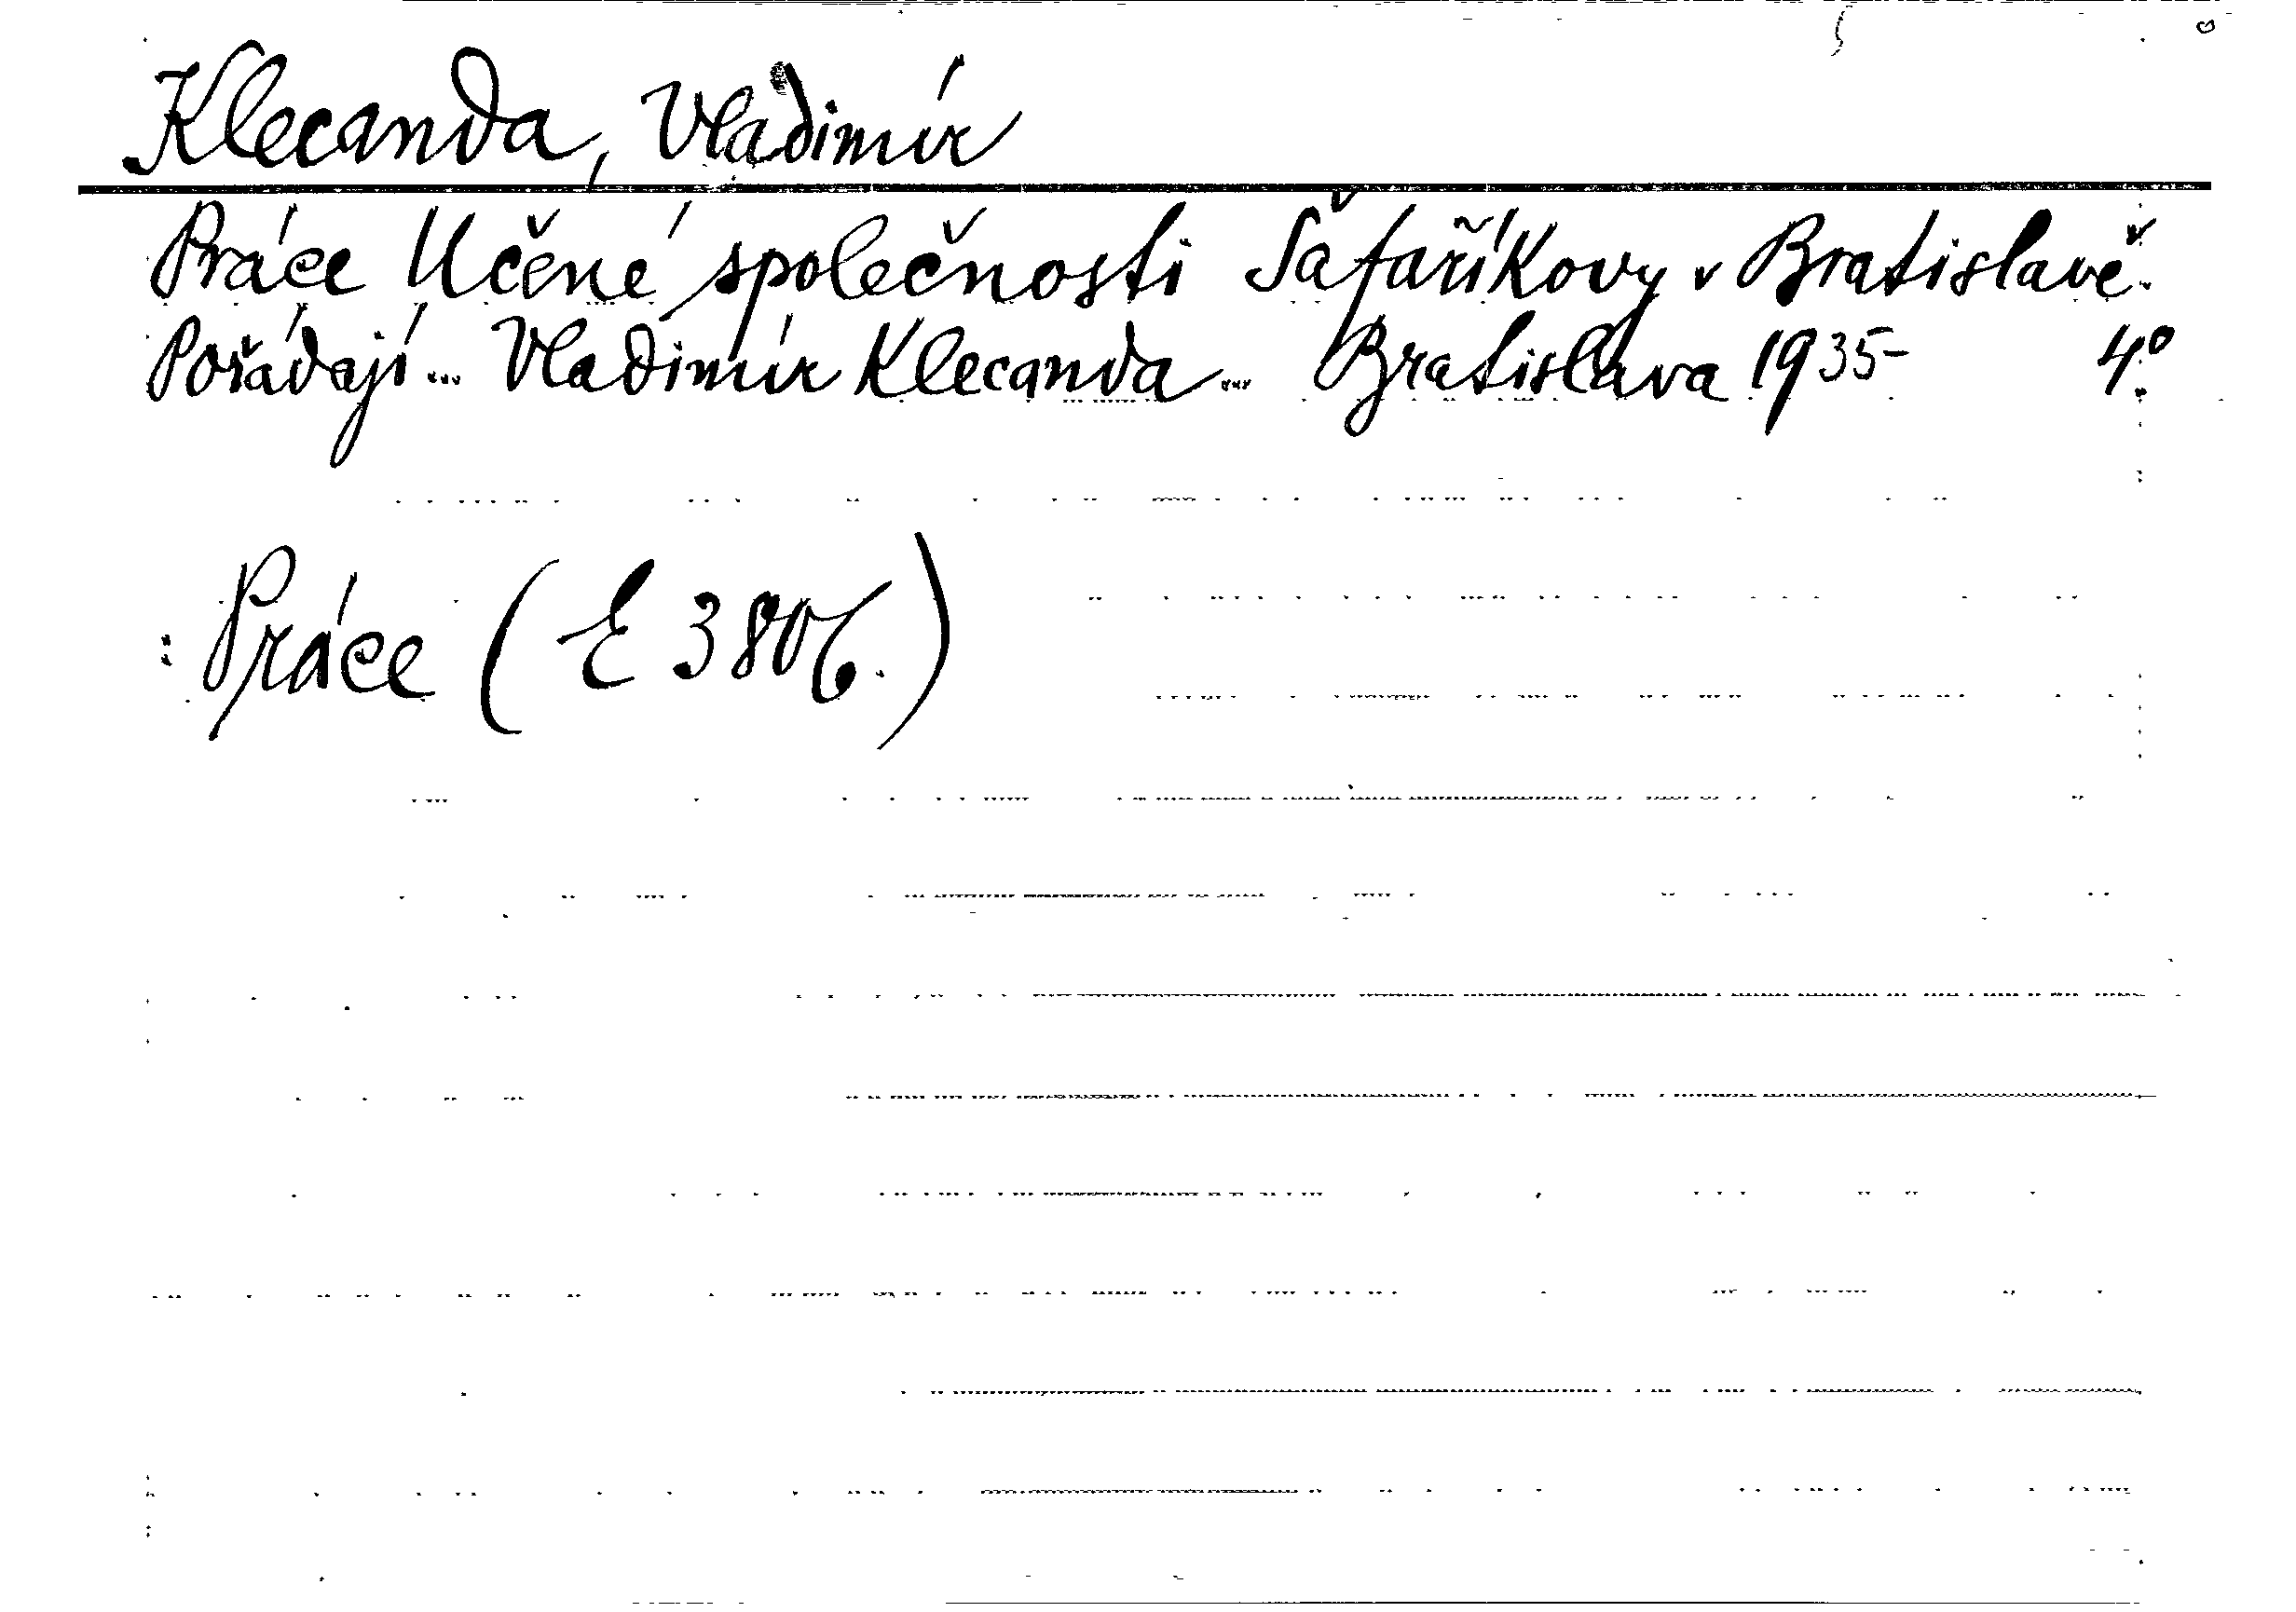 Klecanda, Vladimír
Práce Učené společnosti Šafaříkovy v Bratislavě.
Pořádají ... Vladimír Klecanda ... Bratislava 1935- 4°.
: Práce (E 3806.)